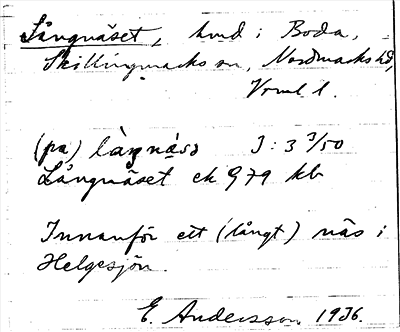 Långnäset, hmd i Boda,
Skillingmarks sn, Nordmarks hd,
Vrml l.
(pa) làŋnä̀sə J: 3 3/50
Långnäset ek G 79 kb
Innanför ett (långt) näs i
Helgesjön.
E. Andersson 1936.